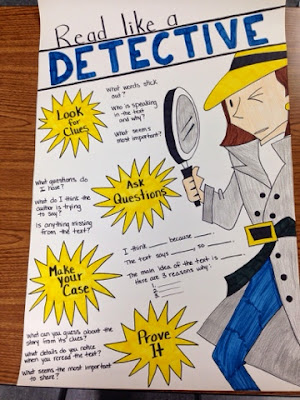 Read like a
DETECTIVE
Look
for
Clues
What words stick
out?
Who is speaking
in the text
and why?
What seems
most important?
What questions do
I have?
What do I think the
author is trying
to say?
Is anything missing
from the text?
Ask
Questions
Make
your
Case
I think _____ because _____.
The text says _____, so _____.
The main idea of the text is _____.
Here are 3 reasons why:
1.
2.
3.
What can you guess about the
story from its' clues?
What details do you notice
when you reread the text?
What seems the most important
to share?
Prove
It